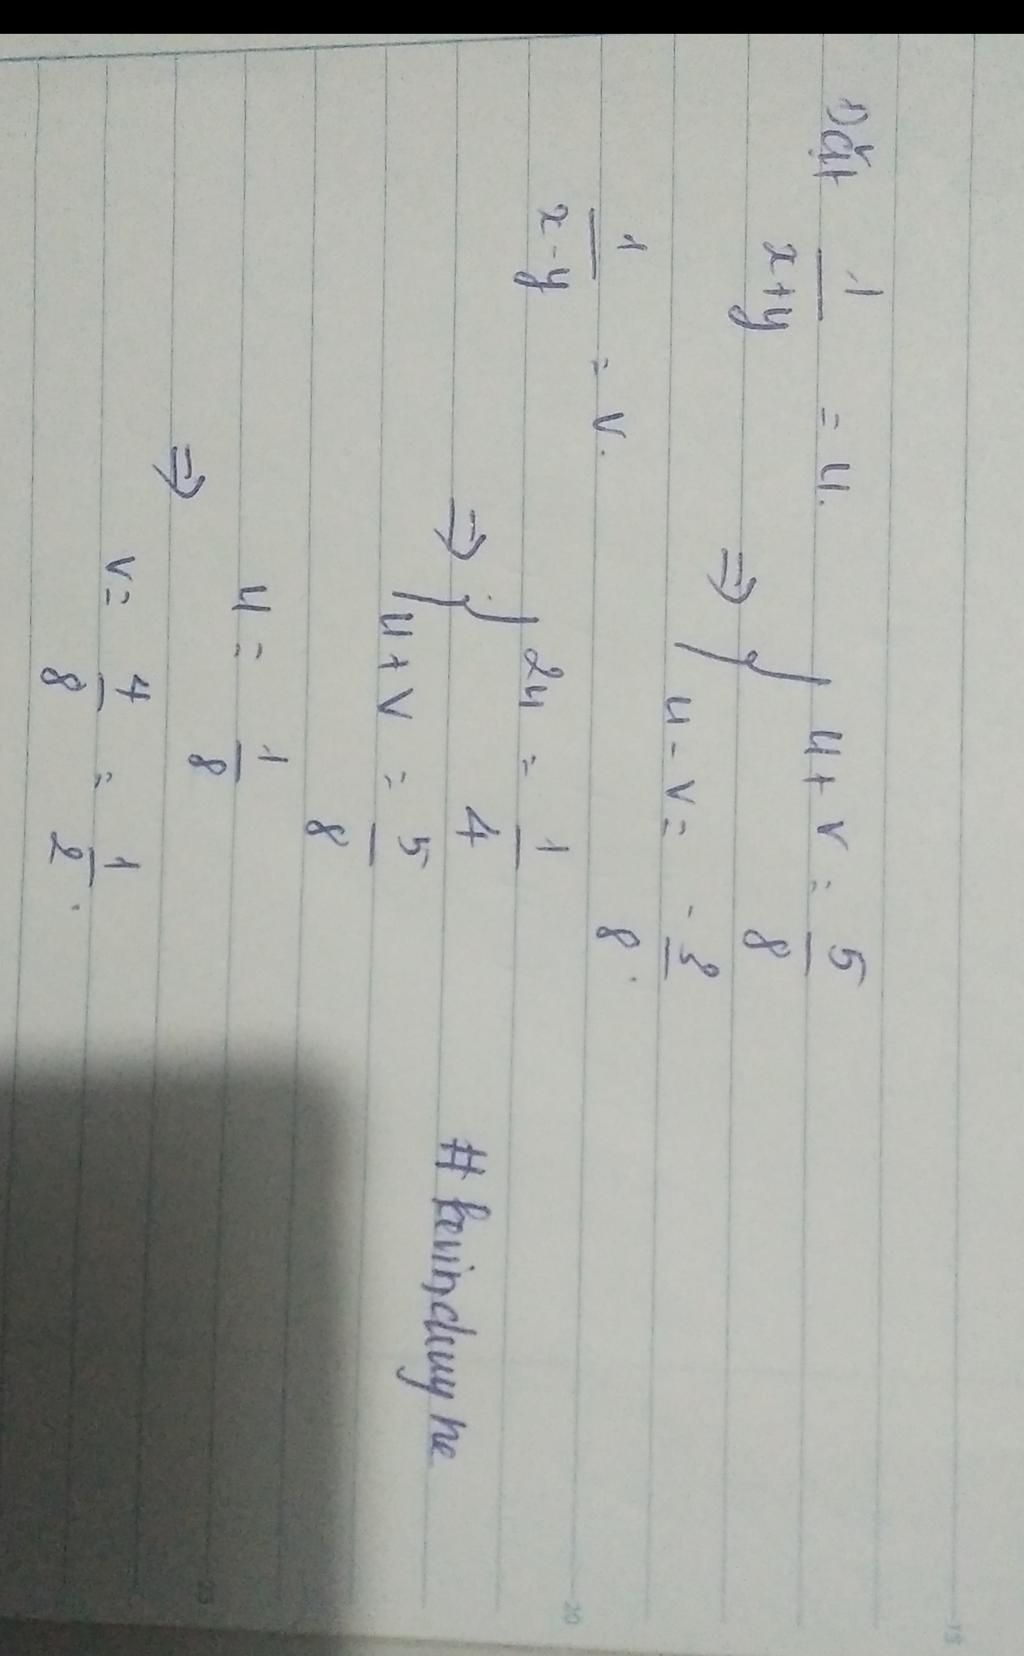 Đặt 1/(x+y) = u.
1/(x-y) = v.
⇒ { u + v = 5/8
u - v = -3/8.
⇒ { 2u = 1/4
u + v = 5/8
⇒ u = 1/8
v = 4/8 = 1/2.
# kevinduy he
15
20
25